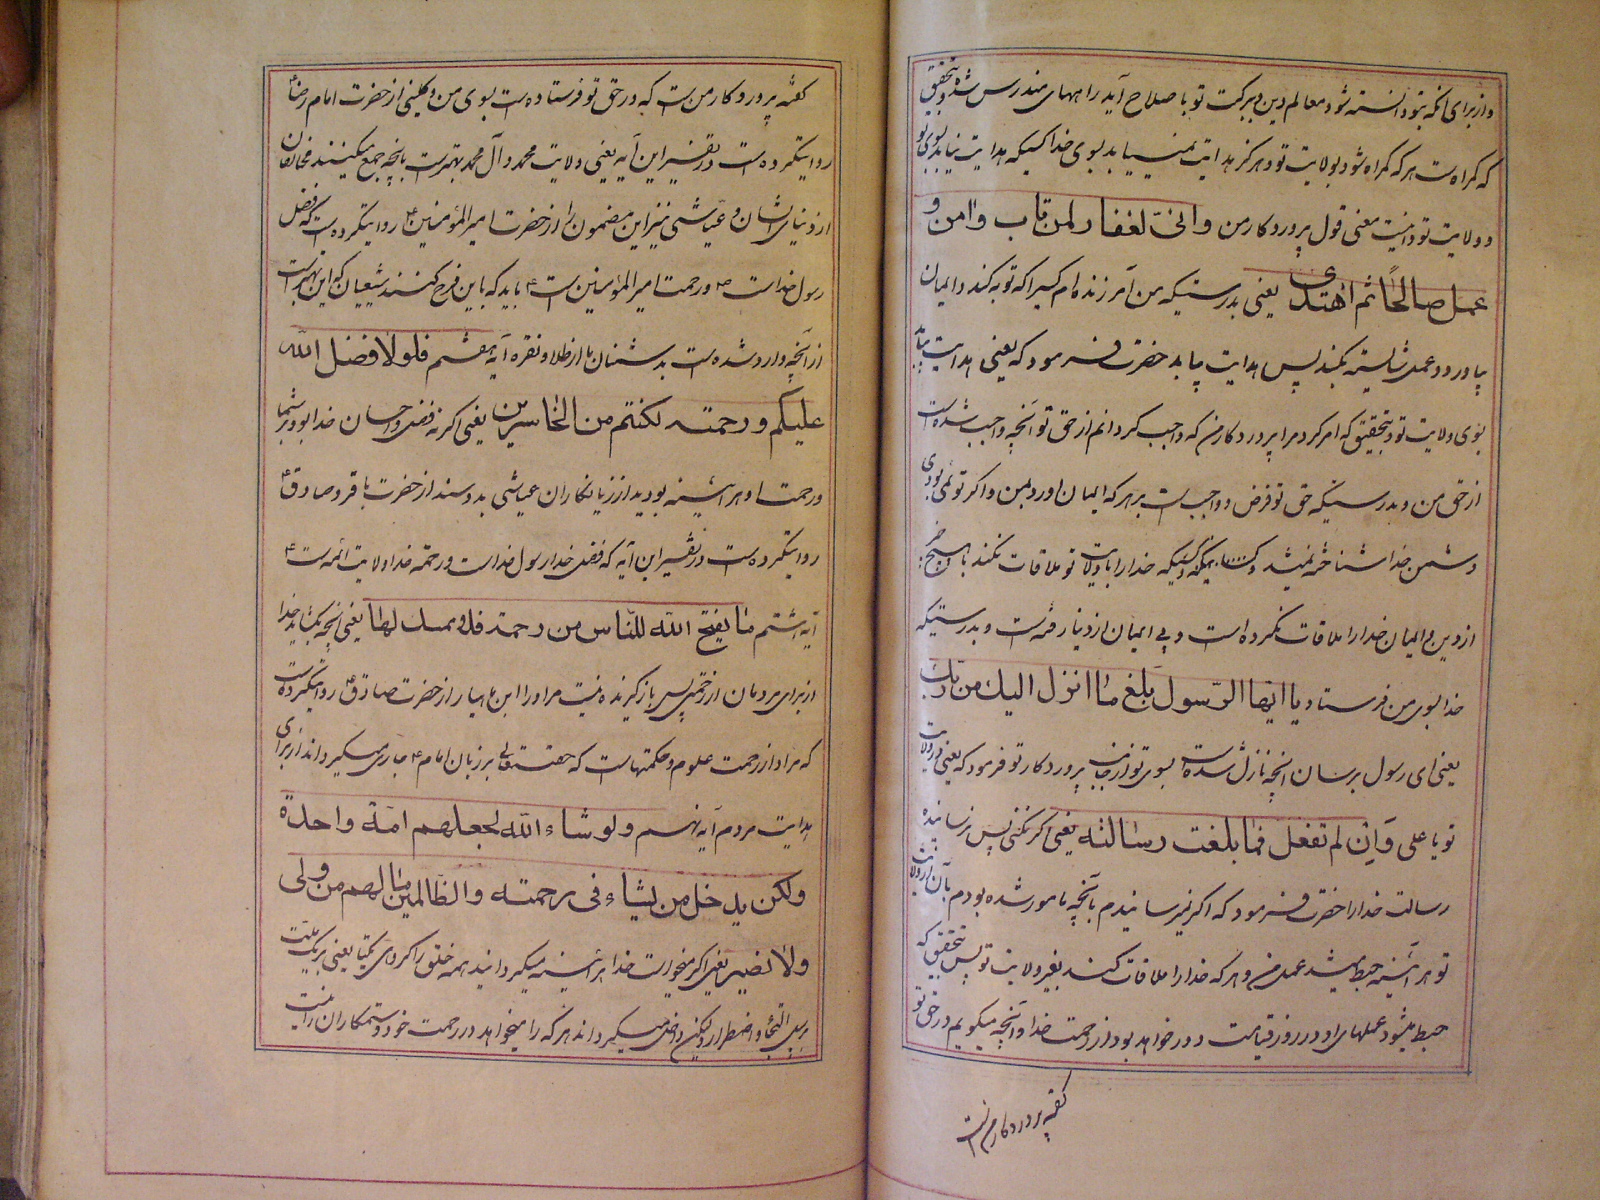 و از برای آنکه بتو دانسته شود معالم دین و ببرکت تو باصلاح آید راههای مندرس شده و بتحقیق
که گمراهست هر که گمراه شود بولایت تو و هرگز هدایت نمییابد بسوی خدا کسیکه هدایت نیابد بسوی تو
و ولایت تو و اینست معنی قول پروردکار من وانی لغفار لمن تاب وامن و
عمل صالحا ثم اهتدی یعنی بدرستیکه من آمرزنده‌ام کسیرا که توبه کند و ایمان
بیاورد و عمل شایسته بکند پس هدایت بیابد حضرت فرمود که یعنی هدایت بیابد
بسوی ولایت تو و بتحقیق که امر کرد مرا پروردکارم که واجب گردانم از حق تو آنچه واجب شده است
از حق من و بدرستیکه حق تو فرض و واجب است بر هر که ایمان آورد بمن و اگر تو نمی بودی
دشمن خدا شناخته نمیشد و کسیکه خدا را با ولایت تو ملاقات نکند با هیچ جزء
از دین و ایمان خدا را ملاقات نکرده است و بی ایمان از دنیا رفته است و بدرستیکه
خدا بسوی من فرستاد یا ایها الرسول بلغ ما انزل الیك من ربك
یعنی ای رسول برسان آنچه نازل شده است بسوی تو از جانب پروردکار تو فرمود که یعنی در ولایت
تو یا علی وان لم تفعل فما بلغت رسالته یعنی اگر نکنی پس نرسانیده
رسالت خدا را حضرت فرمود که اگر نمیرسانیدم بآنچه مامور شده بودم بآن از ولایت
تو هر آینه حبط میشد عمل من و هر که خدا را ملاقات کند بغیر ولایت تو پس بتحقیق که
حبط میشود عملهای او در روز قیامت و دور خواهد بود از رحمت خدا و آنچه میگویم در حق تو
گفته پروردکارم است
گفته پروردکار منست که در حق تو فرستاده‌ست بسوی من و کلینی از حضرت امام رضا ع
روایتکرده‌ست در تفسیر این آیه یعنی ولایت محمد و آل محمد بهترست بآنچه جمع میکنند مخالفان
از دنیای ایشان و عیاشی نیز این مضمون را از حضرت امیر المؤمنین ع روایتکرده‌ست که فضل
رسول خداست ص و رحمت امیر المؤمنین است ع باید که باین فرح کنند شیعیان که این بهترست
از آنچه وارد شده‌ست بدشمنان ما از طلا و نقره آیه هفتم فلولا فضل الله
علیکم ورحمته لکنتم من الخاسرین یعنی اگر نه فضل و احسان خدا بود بر شما
و رحمت او هر آینه بودید از زیانکاران عیاشی بدو سند از حضرت باقر و صادق ع
روایتکرده‌ست در تفسیر این آیه که فضل خدا رسول خداست و رحمت خدا ولایت ائمه ست ع
آیه هشتم ما یفتح الله للناس من رحمة فلا ممسك لها یعنی آنچه بگشاید خدا
از برای مردمان از رحمتی پس بازگیرنده نیست مر او را ابن ماهیار از حضرت صادق ع روایتکرده‌ست
که مراد از رحمت علوم و حکمتهاست که حقتعالی بر زبان امام ع جاری میگرداند از برای
هدایت مردم آیه نهم ولو شاء الله لجعلهم امة واحدة
ولکن یدخل من یشاء فی رحمته والظالمین ما لهم من ولی
ولا نصیر یعنی اگر میخواست خدا هر آینه میگردانید همه خلق را گروهی یکتا یعنی بر یک ملت
بسبیل الجاء و اضطرار ولیکن داخل میگرداند هر که را میخواهد در رحمت خود و ستمکاران را نیست